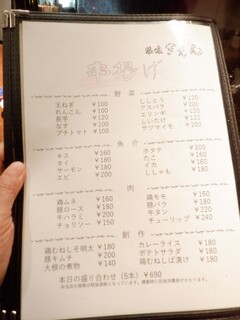 串揚げ
野菜
玉ねぎ ¥100
れんこん ¥100
長芋 ¥120
なす ¥100
プチトマト ¥100
ししとう ¥120
アスパラ ¥200
エリンギ ¥120
しいたけ ¥120
サツマイモ ¥100
魚介
キス ¥160
タイ ¥180
サーモン ¥180
エビ ¥200
ホタテ ¥200
たこ ¥200
イカ ¥160
ししゃも ¥180
肉
鶏ムネ ¥160
豚ロース ¥180
牛ハラミ ¥200
チョリソー ¥150
鶏モモ ¥160
豚バラ ¥180
牛タン ¥220
チューリップ ¥240
創作
鶏むねしそ明太 ¥180
豚キムチ ¥200
大根の煮物 ¥140
カレーライス ¥180
ポテトサラダ ¥180
鶏むねしば漬け ¥180
本日の盛り合わせ（5本） ¥690